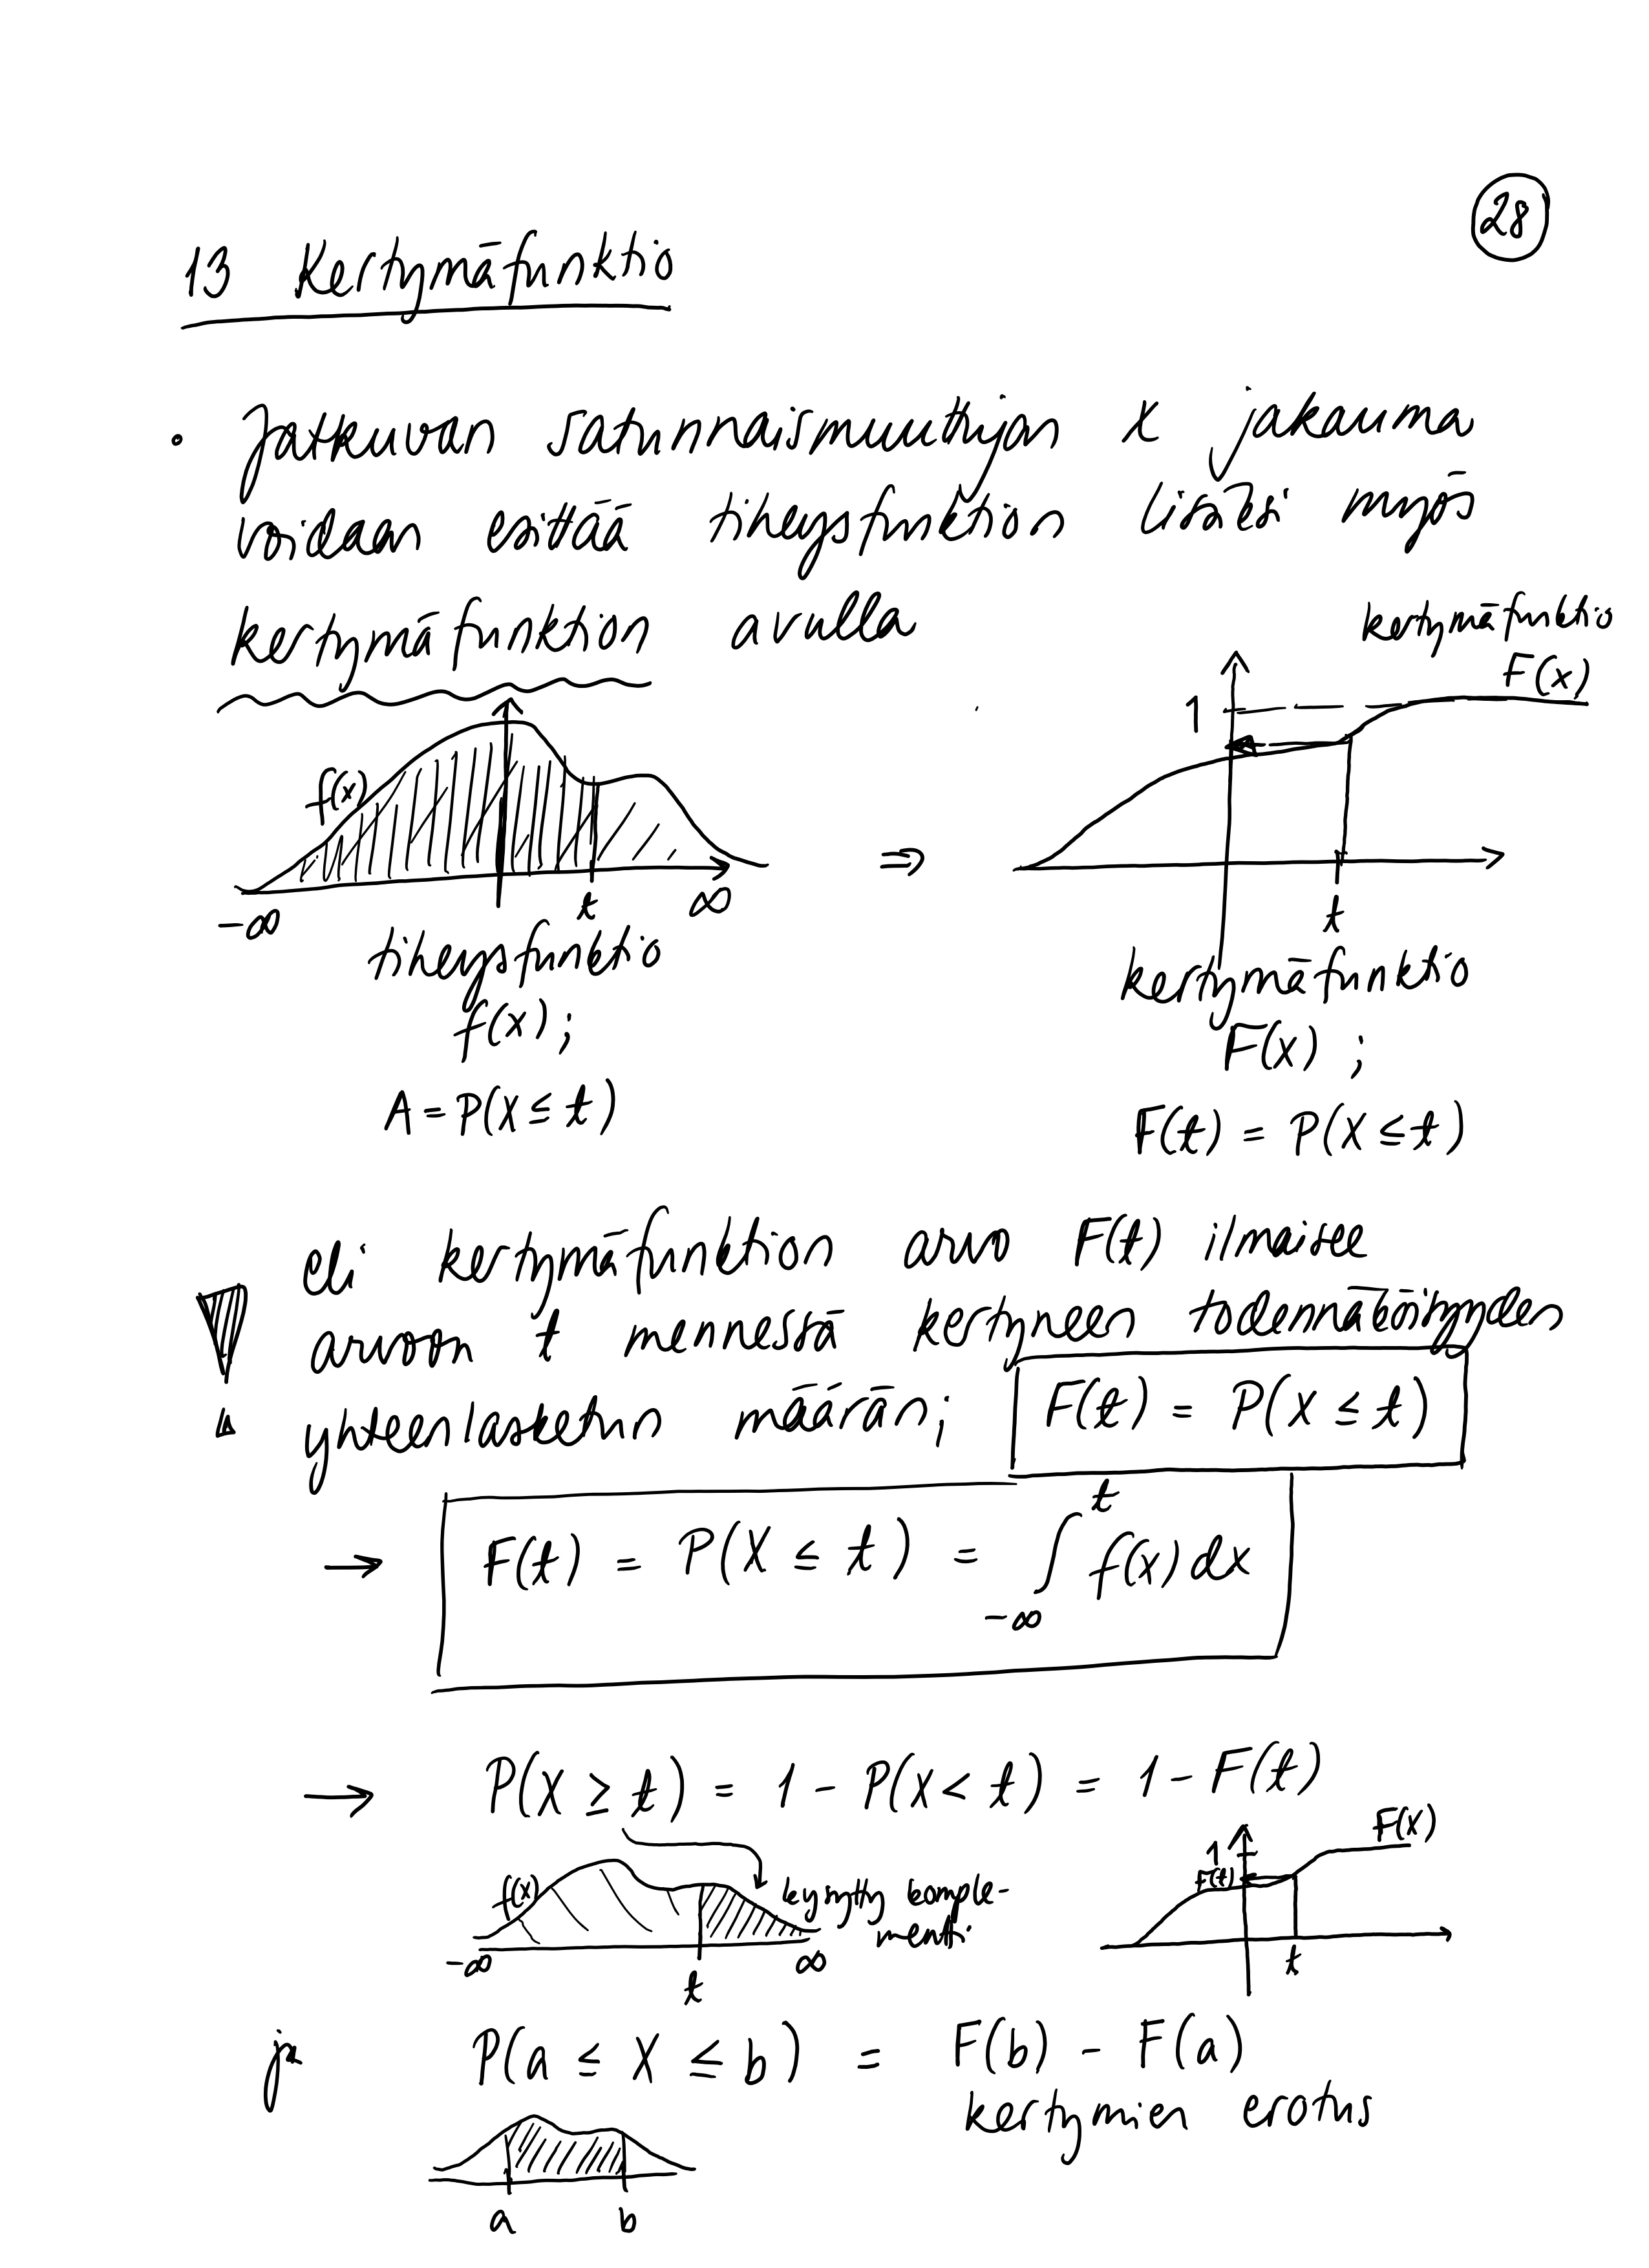 28
13 Kertymäfunktio
• Jatkuvan satunnaismuuttujan X jakauma
voidaan esittää tiheysfunktion lisäksi myös
kertymäfunktion avulla
kertymäfunktio
F(x)
1
f(x)
⇒
-∞ t ∞
t
tiheysfunktio
f(x);
A = P(X ≤ t)
kertymäfunktio
F(x) ;
F(t) = P(X ≤ t)
eli kertymäfunktion arvo F(t) ilmaisee
arvoon t mennessä kertyneen todennäköisyyden
yhteenlasketun määrän; F(t) = P(X ≤ t)
→ F(t) = P(X ≤ t) = ∫_{-∞}^{t} f(x) dx
→ P(X ≥ t) = 1 - P(X < t) = 1 - F(t)
f(x)
kysytty komple-
mentti
-∞ t ∞
F(x)
1
F(t)
t
ja P(a ≤ X ≤ b) = F(b) - F(a)
kertymien erotus
a b